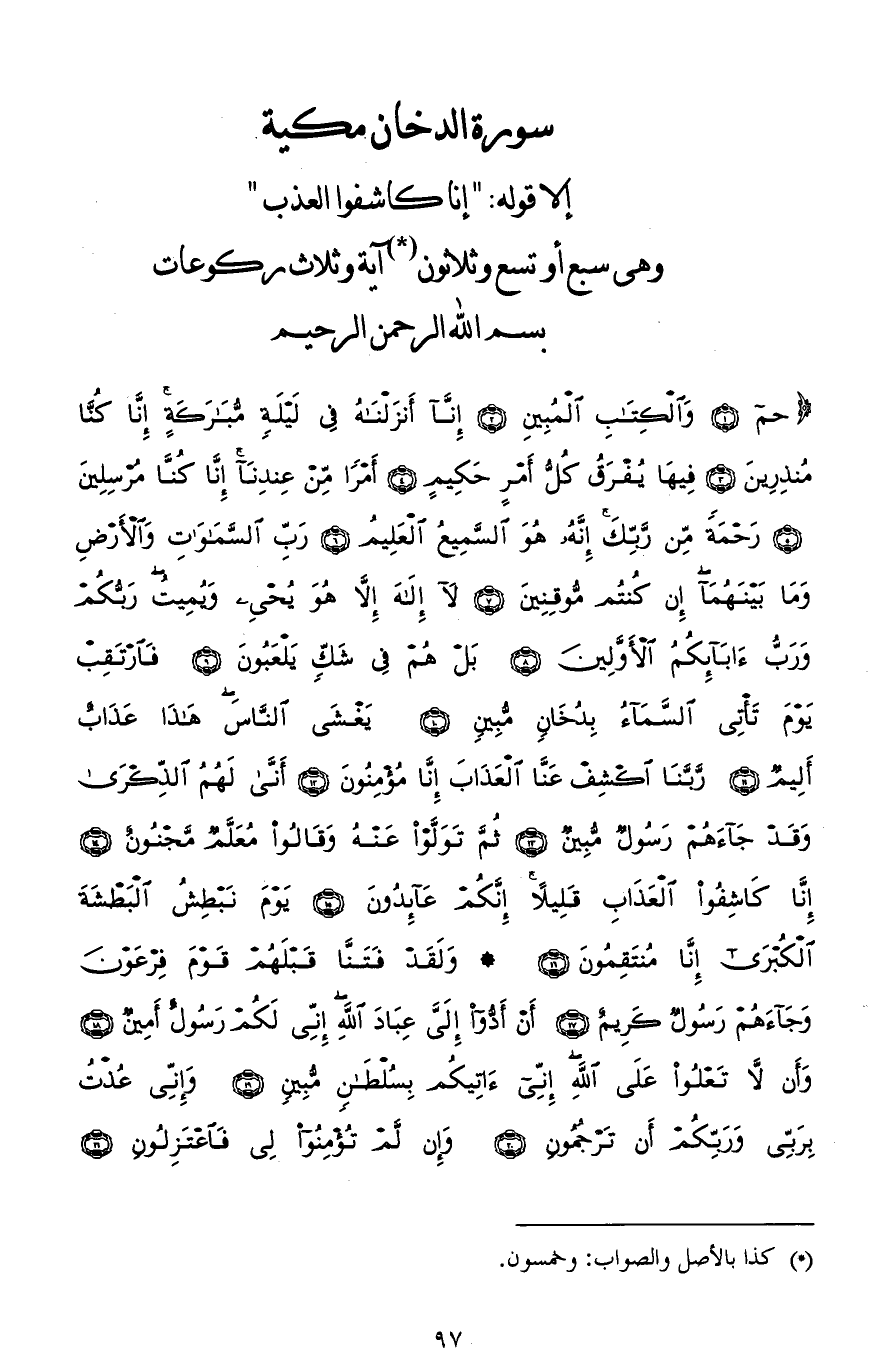 سورة الدخان مكية
إلا قوله: "إنا كاشفوا العذب"
وهى سبع أو تسع وثلاثون(*) آية وثلاث ركوعات
بسم الله الرحمن الرحيم
﴿ حمٓ ۝١ وَٱلْكِتَٰبِ ٱلْمُبِينِ ۝٢ إِنَّآ أَنزَلْنَٰهُ فِى لَيْلَةٍ مُّبَٰرَكَةٍ ۚ إِنَّا كُنَّا
مُنذِرِينَ ۝٣ فِيهَا يُفْرَقُ كُلُّ أَمْرٍ حَكِيمٍ ۝٤ أَمْرًا مِّنْ عِندِنَآ ۚ إِنَّا كُنَّا مُرْسِلِينَ
۝٥ رَحْمَةً مِّن رَّبِّكَ ۚ إِنَّهُۥ هُوَ ٱلسَّمِيعُ ٱلْعَلِيمُ ۝٦ رَبِّ ٱلسَّمَٰوَٰتِ وَٱلْأَرْضِ
وَمَا بَيْنَهُمَآ ۖ إِن كُنتُم مُّوقِنِينَ ۝٧ لَآ إِلَٰهَ إِلَّا هُوَ يُحْىِۦ وَيُمِيتُ ۖ رَبُّكُمْ
وَرَبُّ ءَابَآئِكُمُ ٱلْأَوَّلِينَ ۝٨ بَلْ هُمْ فِى شَكٍّ يَلْعَبُونَ ۝٩ فَٱرْتَقِبْ
يَوْمَ تَأْتِى ٱلسَّمَآءُ بِدُخَانٍ مُّبِينٍ ۝١٠ يَغْشَى ٱلنَّاسَ ۖ هَٰذَا عَذَابٌ
أَلِيمٌ ۝١١ رَّبَّنَا ٱكْشِفْ عَنَّا ٱلْعَذَابَ إِنَّا مُؤْمِنُونَ ۝١٢ أَنَّىٰ لَهُمُ ٱلذِّكْرَىٰ
وَقَدْ جَآءَهُمْ رَسُولٌ مُّبِينٌ ۝١٣ ثُمَّ تَوَلَّوْا۟ عَنْهُ وَقَالُوا۟ مُعَلَّمٌ مَّجْنُونٌ ۝١٤
إِنَّا كَاشِفُوا۟ ٱلْعَذَابِ قَلِيلًا ۚ إِنَّكُمْ عَآئِدُونَ ۝١٥ يَوْمَ نَبْطِشُ ٱلْبَطْشَةَ
ٱلْكُبْرَىٰٓ إِنَّا مُنتَقِمُونَ ۝١٦ * وَلَقَدْ فَتَنَّا قَبْلَهُمْ قَوْمَ فِرْعَوْنَ
وَجَآءَهُمْ رَسُولٌ كَرِيمٌ ۝١٧ أَنْ أَدُّوٓا۟ إِلَىَّ عِبَادَ ٱللَّهِ ۖ إِنِّى لَكُمْ رَسُولٌ أَمِينٌ ۝١٨
وَأَن لَّا تَعْلُوا۟ عَلَى ٱللَّهِ ۖ إِنِّىٓ ءَاتِيكُم بِسُلْطَٰنٍ مُّبِينٍ ۝١٩ وَإِنِّى عُذْتُ
بِرَبِّى وَرَبِّكُمْ أَن تَرْجُمُونِ ۝٢٠ وَإِن لَّمْ تُؤْمِنُوا۟ لِى فَٱعْتَزِلُونِ ۝٢١
(*) كذا بالأصل والصواب: وخمسون.
٩٧